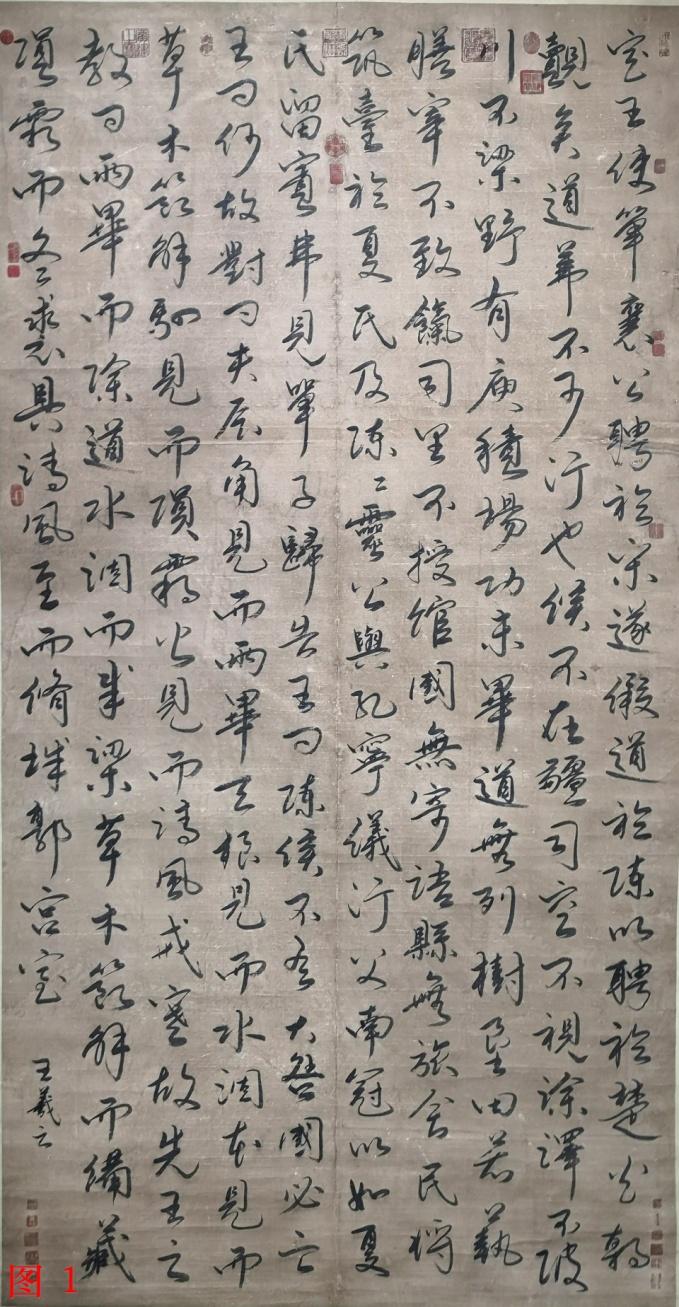 定王使單襄公聘於宋遂假道於陳以聘於楚火朝
覿矣道茀不可行也候不在疆司空不視塗澤不陂
川不梁野有庾積場功未畢道無列樹墾田若蓺
膳宰不致餼司里不授館國無寄語縣無旅舍民將
築臺於夏氏及陳〻靈公與孔寧儀行父南冠以如夏
氏留賓弗見單子歸告王曰陳侯不有大咎國必亡
王曰何故對曰夫辰角見而雨畢天根見而水涸本見而
草木節解駟見而隕霜火見而清風戒寒故先王之
教曰雨畢而除道水涸而成梁草木節解而備藏
隕霜而冬裘具清風至而脩城郭宮室
王羲之
图 1